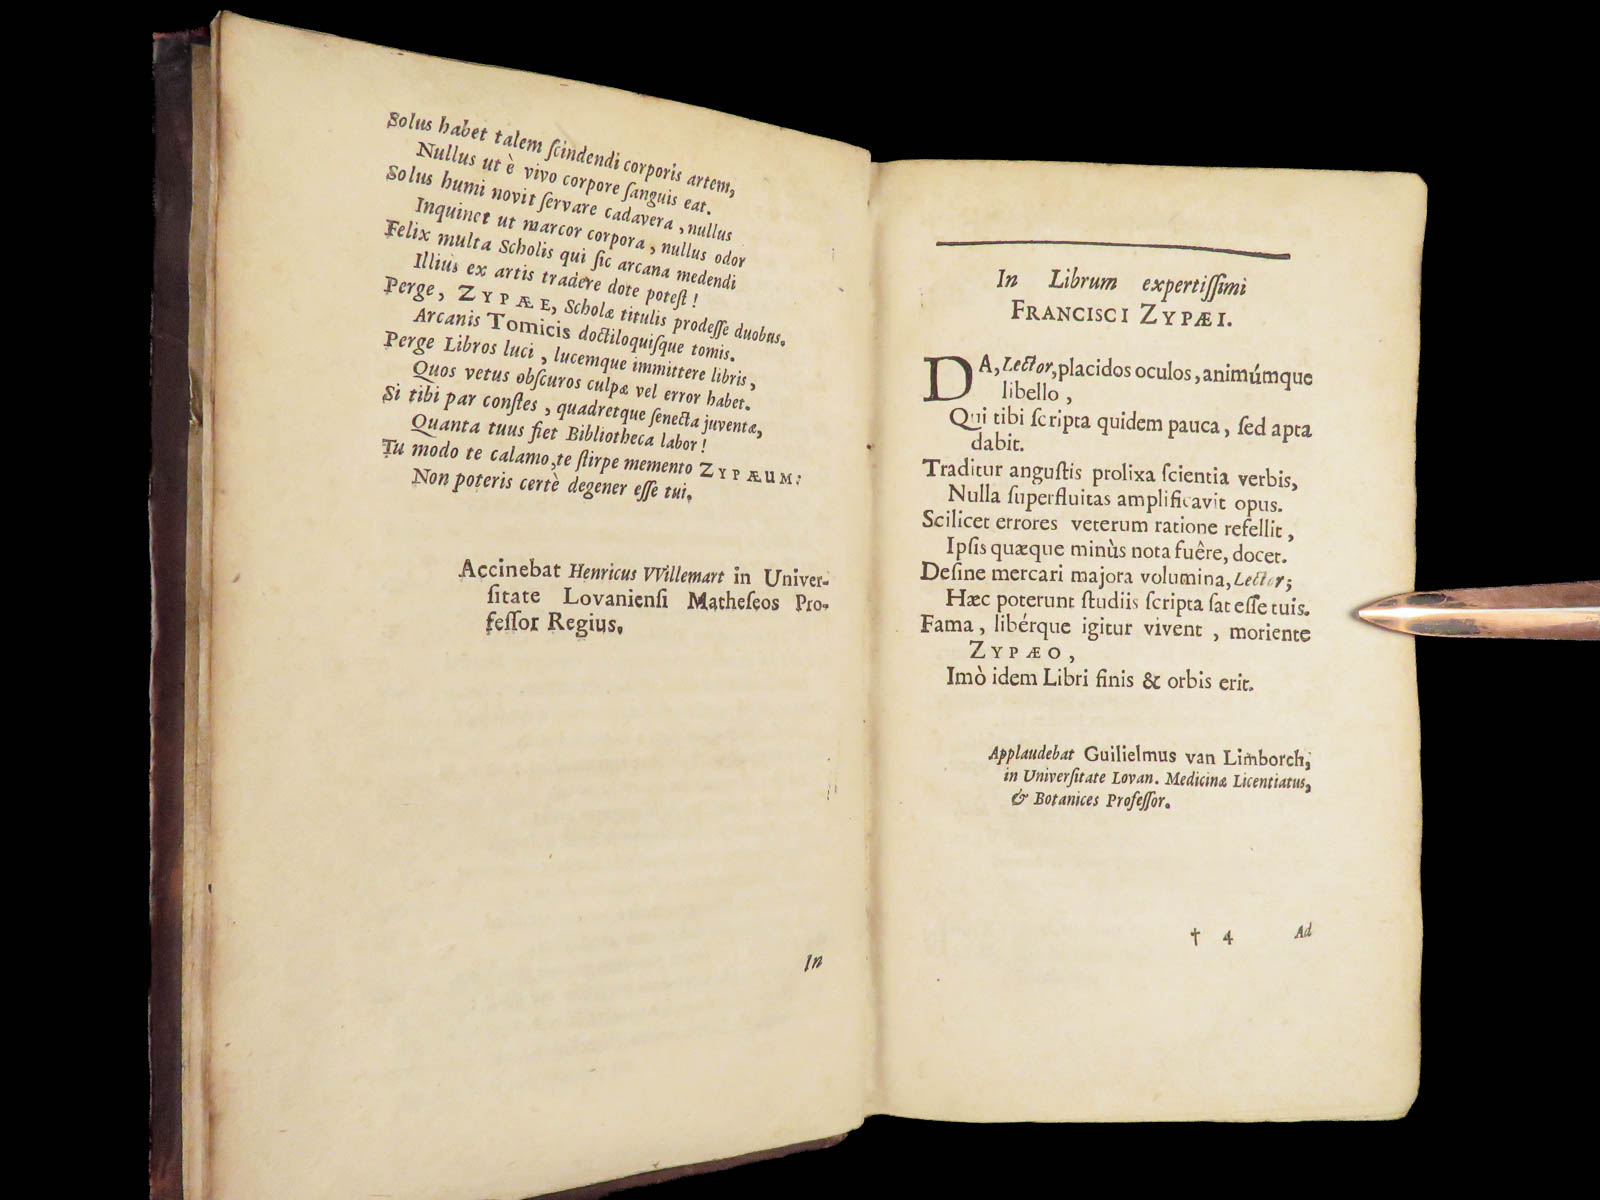 Solus habet talem ſcindendi corporis artem,
Nullus ut è vivo corpore ſanguis eat.
Solus humi novit ſervare cadavera, nullus
Inquinet ut marcor corpora, nullus odor
Felix multa Scholis qui ſic arcana medendi
Illius ex artis tradere dote poteſt!
Perge, ZYPÆE, Scholæ titulis prodeſſe duobus.
Arcanis Tomicis doctiloquiſque tomis.
Perge Libros luci, lucemque immittere libris,
Quos vetus obſcuros culpæ vel error habet.
Si tibi par conſtes, quadretque ſenecta juventæ,
Quanta tuus fiet Bibliotheca labor!
Tu modo te calamo, te ſtirpe memento ZYPÆUM:
Non poteris certè degener eſſe tui.
Accinebat Henricus VVillemart in Univer-
ſitate Lovanienſi Matheſeos Pro-
feſſor Regius.
In
In Librum expertiſſimi
FRANCISCI ZYPÆI.
DA, Lector, placidos oculos, animúmque
libello,
Qui tibi ſcripta quidem pauca, ſed apta
dabit.
Traditur anguſtis prolixa ſcientia verbis,
Nulla ſuperfluitas amplificavit opus.
Scilicet errores veterum ratione refellit,
Ipſis quæque minùs nota fuêre, docet.
Deſine mercari majora volumina, Lector;
Hæc poterunt ſtudiis ſcripta ſat eſſe tuis.
Fama, libérque igitur vivent, moriente
ZYPÆO,
Imò idem Libri finis & orbis erit.
Applaudebat Guilielmus van Limborch,
in Univerſitate Lovan. Medicinæ Licentiatus,
& Botanices Profeſſor.
† 4 Ad